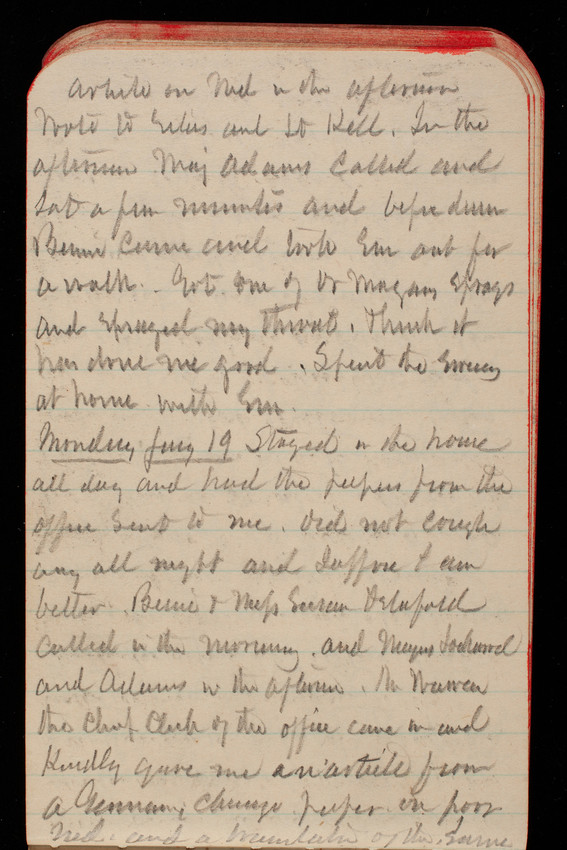 article on Ned in the afternoon
Wrote to Giles and to Kell. In the
afternoon Maj Adams called and
Sat a few minutes and before dinner
Bernie Came and took Em out for
a walk. Got one of Dr Sprays
and Sprayed my throat. Think it
has done me good. Spent the Evening
at home with Em.
Monday Jany 19 Stayed in the house
all day and had the papers from the
office Sent to me. Did not cough
any all night and Suppose I am
better. Bernie & Miss Susan Delafield
called in the morning. and Majors Lockwood
and Adams in the afternoon. Mr Warren
the Chief Clerk of the office came in and
Kindly gave me an article from
a German, Chicago paper on poor
Ned. and a translation of the Same